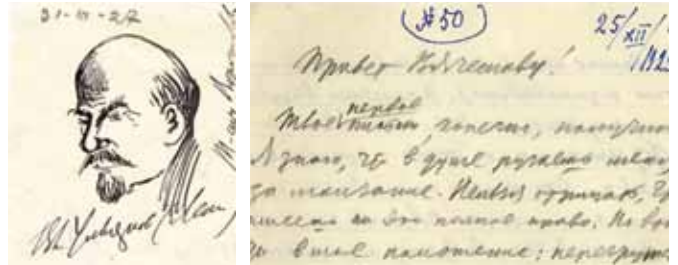 31-III-27
Вл. Ульянов (Ленин)
№ 50
25/XII/192
Привет Вячеславу!
Твоё первое письмо, конечно, получил
Я знаю, что в душе ругаешь меня
за молчание. Нельзя отрицать,
имеешь на это полное право. Но во
в мое положение: перегруже